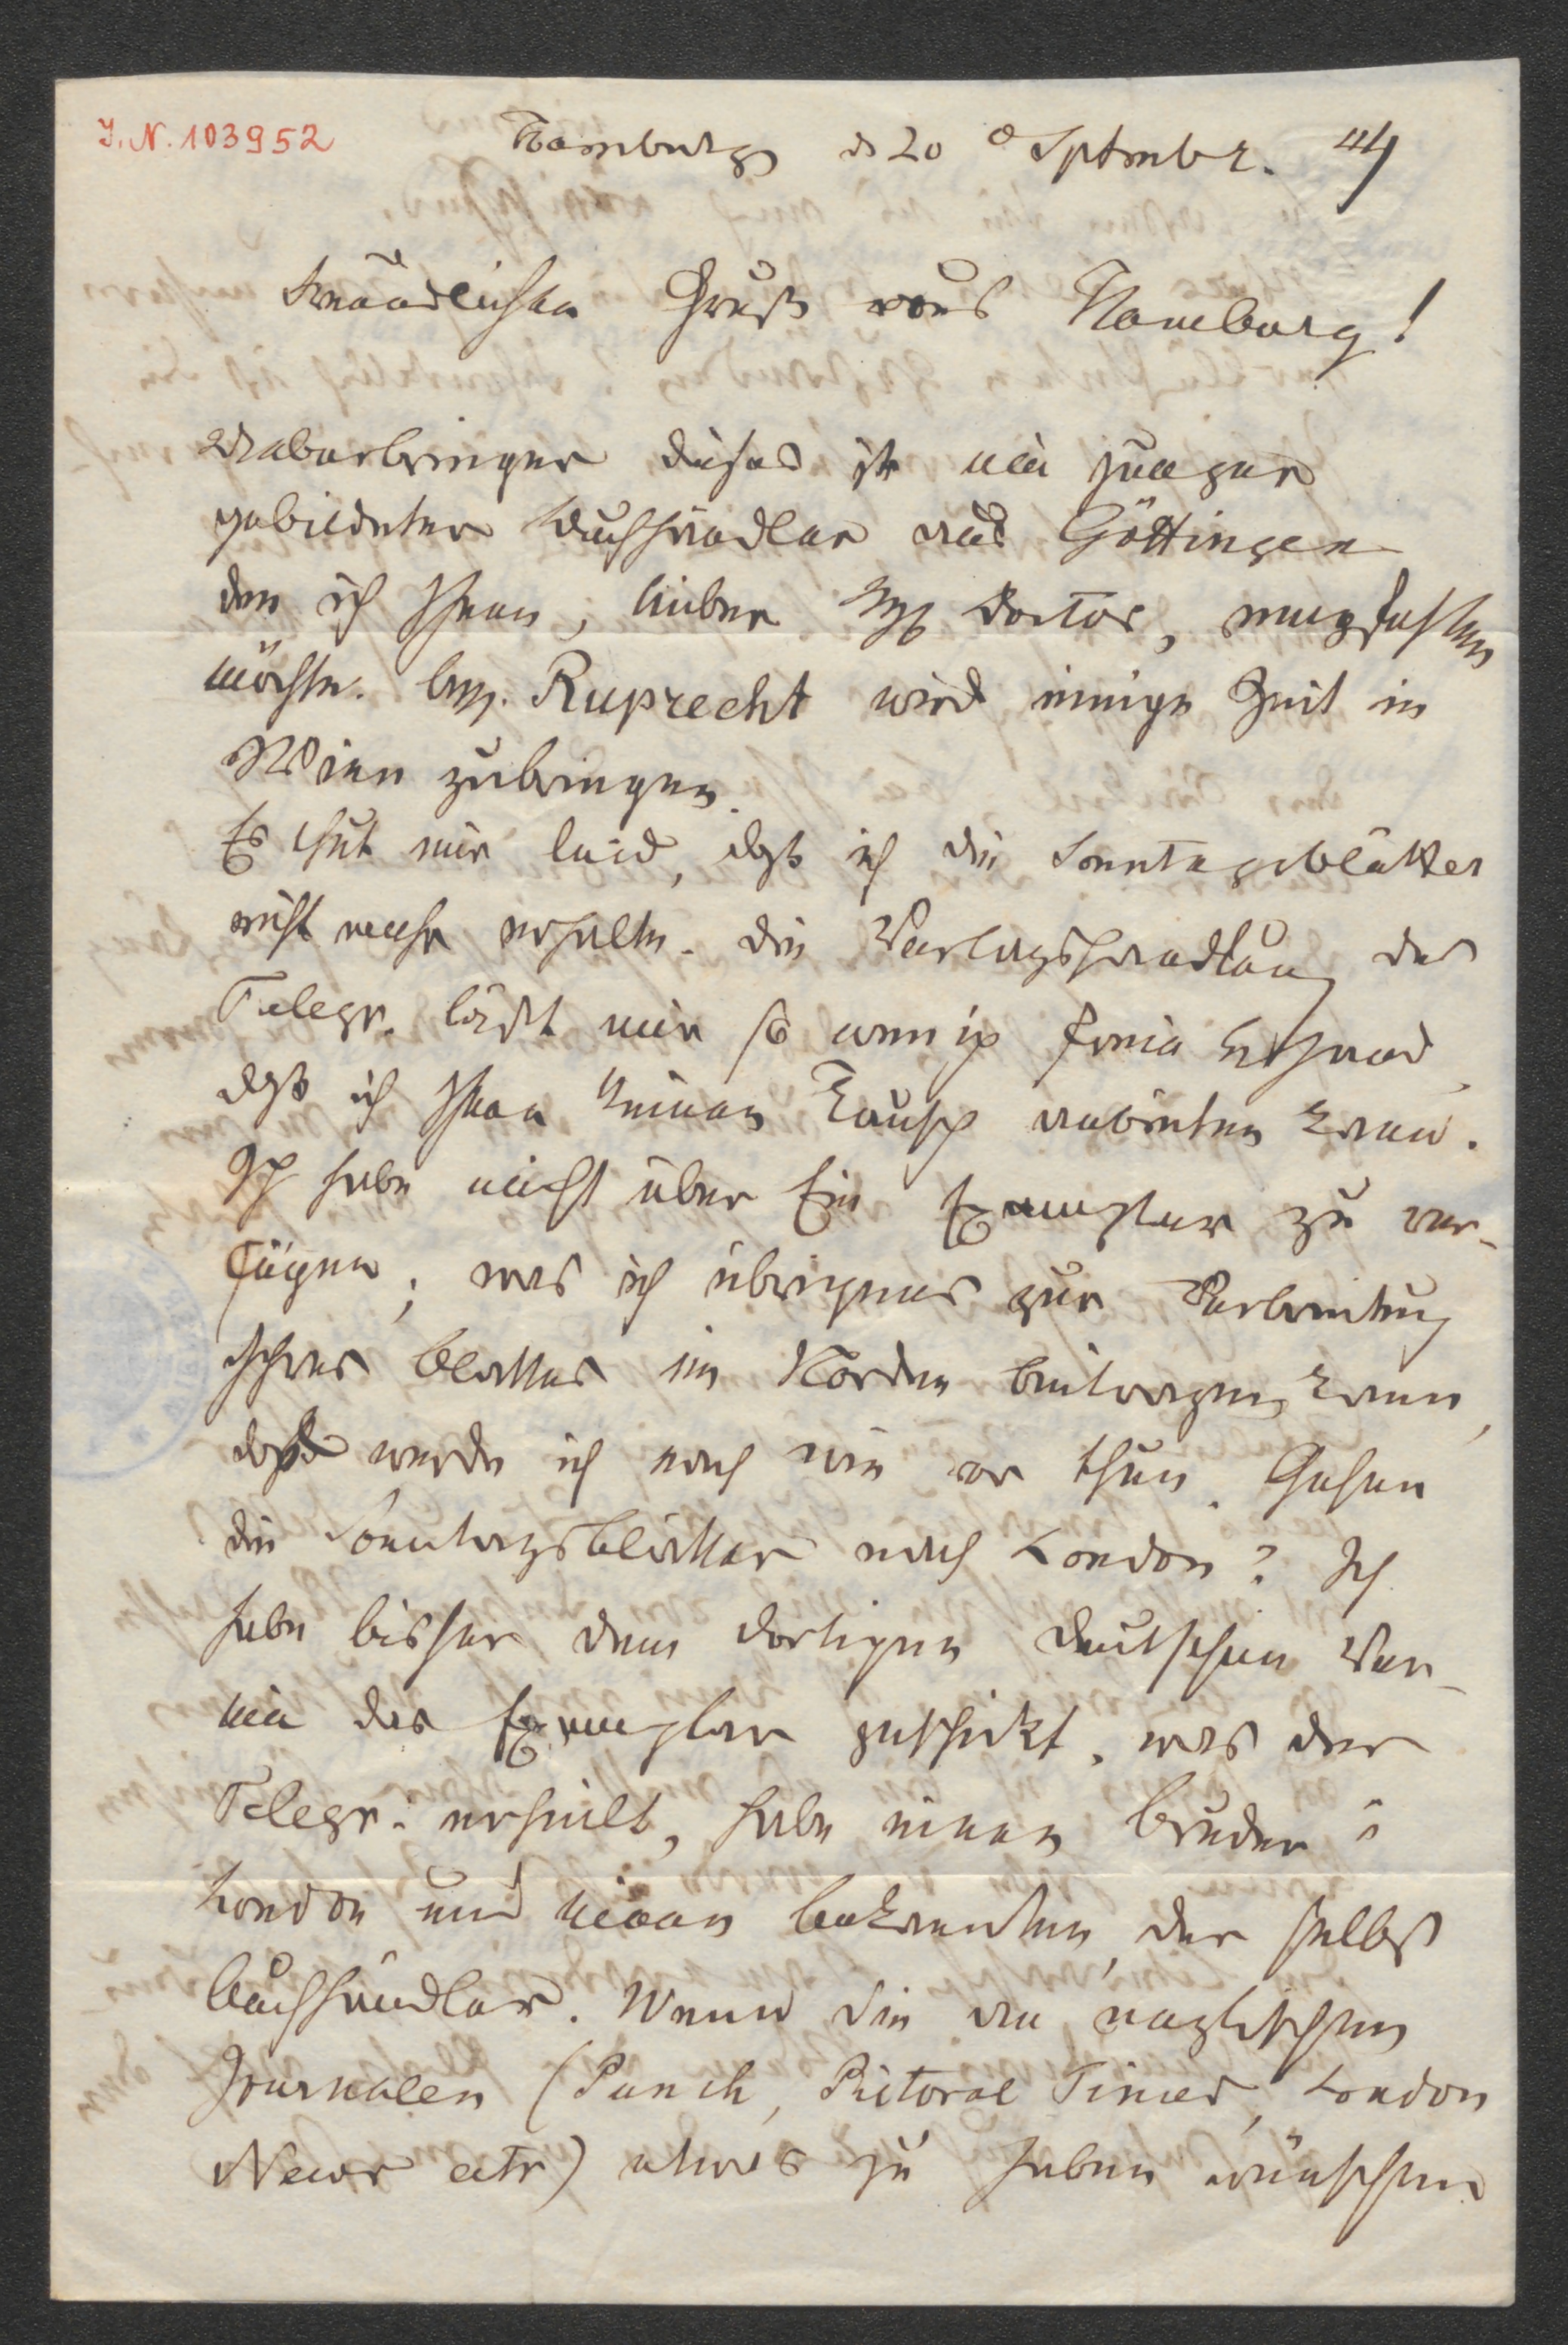 J. N. 103952
Hamburg d 20 Septmbr. 44
Freundlichen Gruß aus Hamburg!
Ueberbringer dieses ist ein junger
gebildeter Buchhändler aus Göttingen
den ich Ihnen, lieber Hr Doctor, empfehlen
möchte. Hr. Ruprecht wird einige Zeit in
Wien zubringen.
Es thut mir leid, daß ich die Sonntagsblätter
nicht mehr erhalte. Die Verlagshandlung des
Telegr. läßt mir so wenig freie Hand,
daß ich Ihnen keinen Tausch anbieten kann.
Ich habe nicht über Ein Exemplar zu ver-
fügen; was ich übrigens zur Verbreitung
Ihres Blattes im Norden beitragen kann,
das werde ich nach wie vor thun. Gehen
die Sonntagsblätter nach London? Ich
habe bisher dem dortigen deutschen Ver-
ein das Exemplar geschickt, was der
Telegr. erhielt, habe einen Bruder in
London und einen Bekannten, der selbst
Buchhändler. Wenn Sie an englischen
Journalen (Punch, Pictoral Times, London
News etc) etwas zu haben wünschen